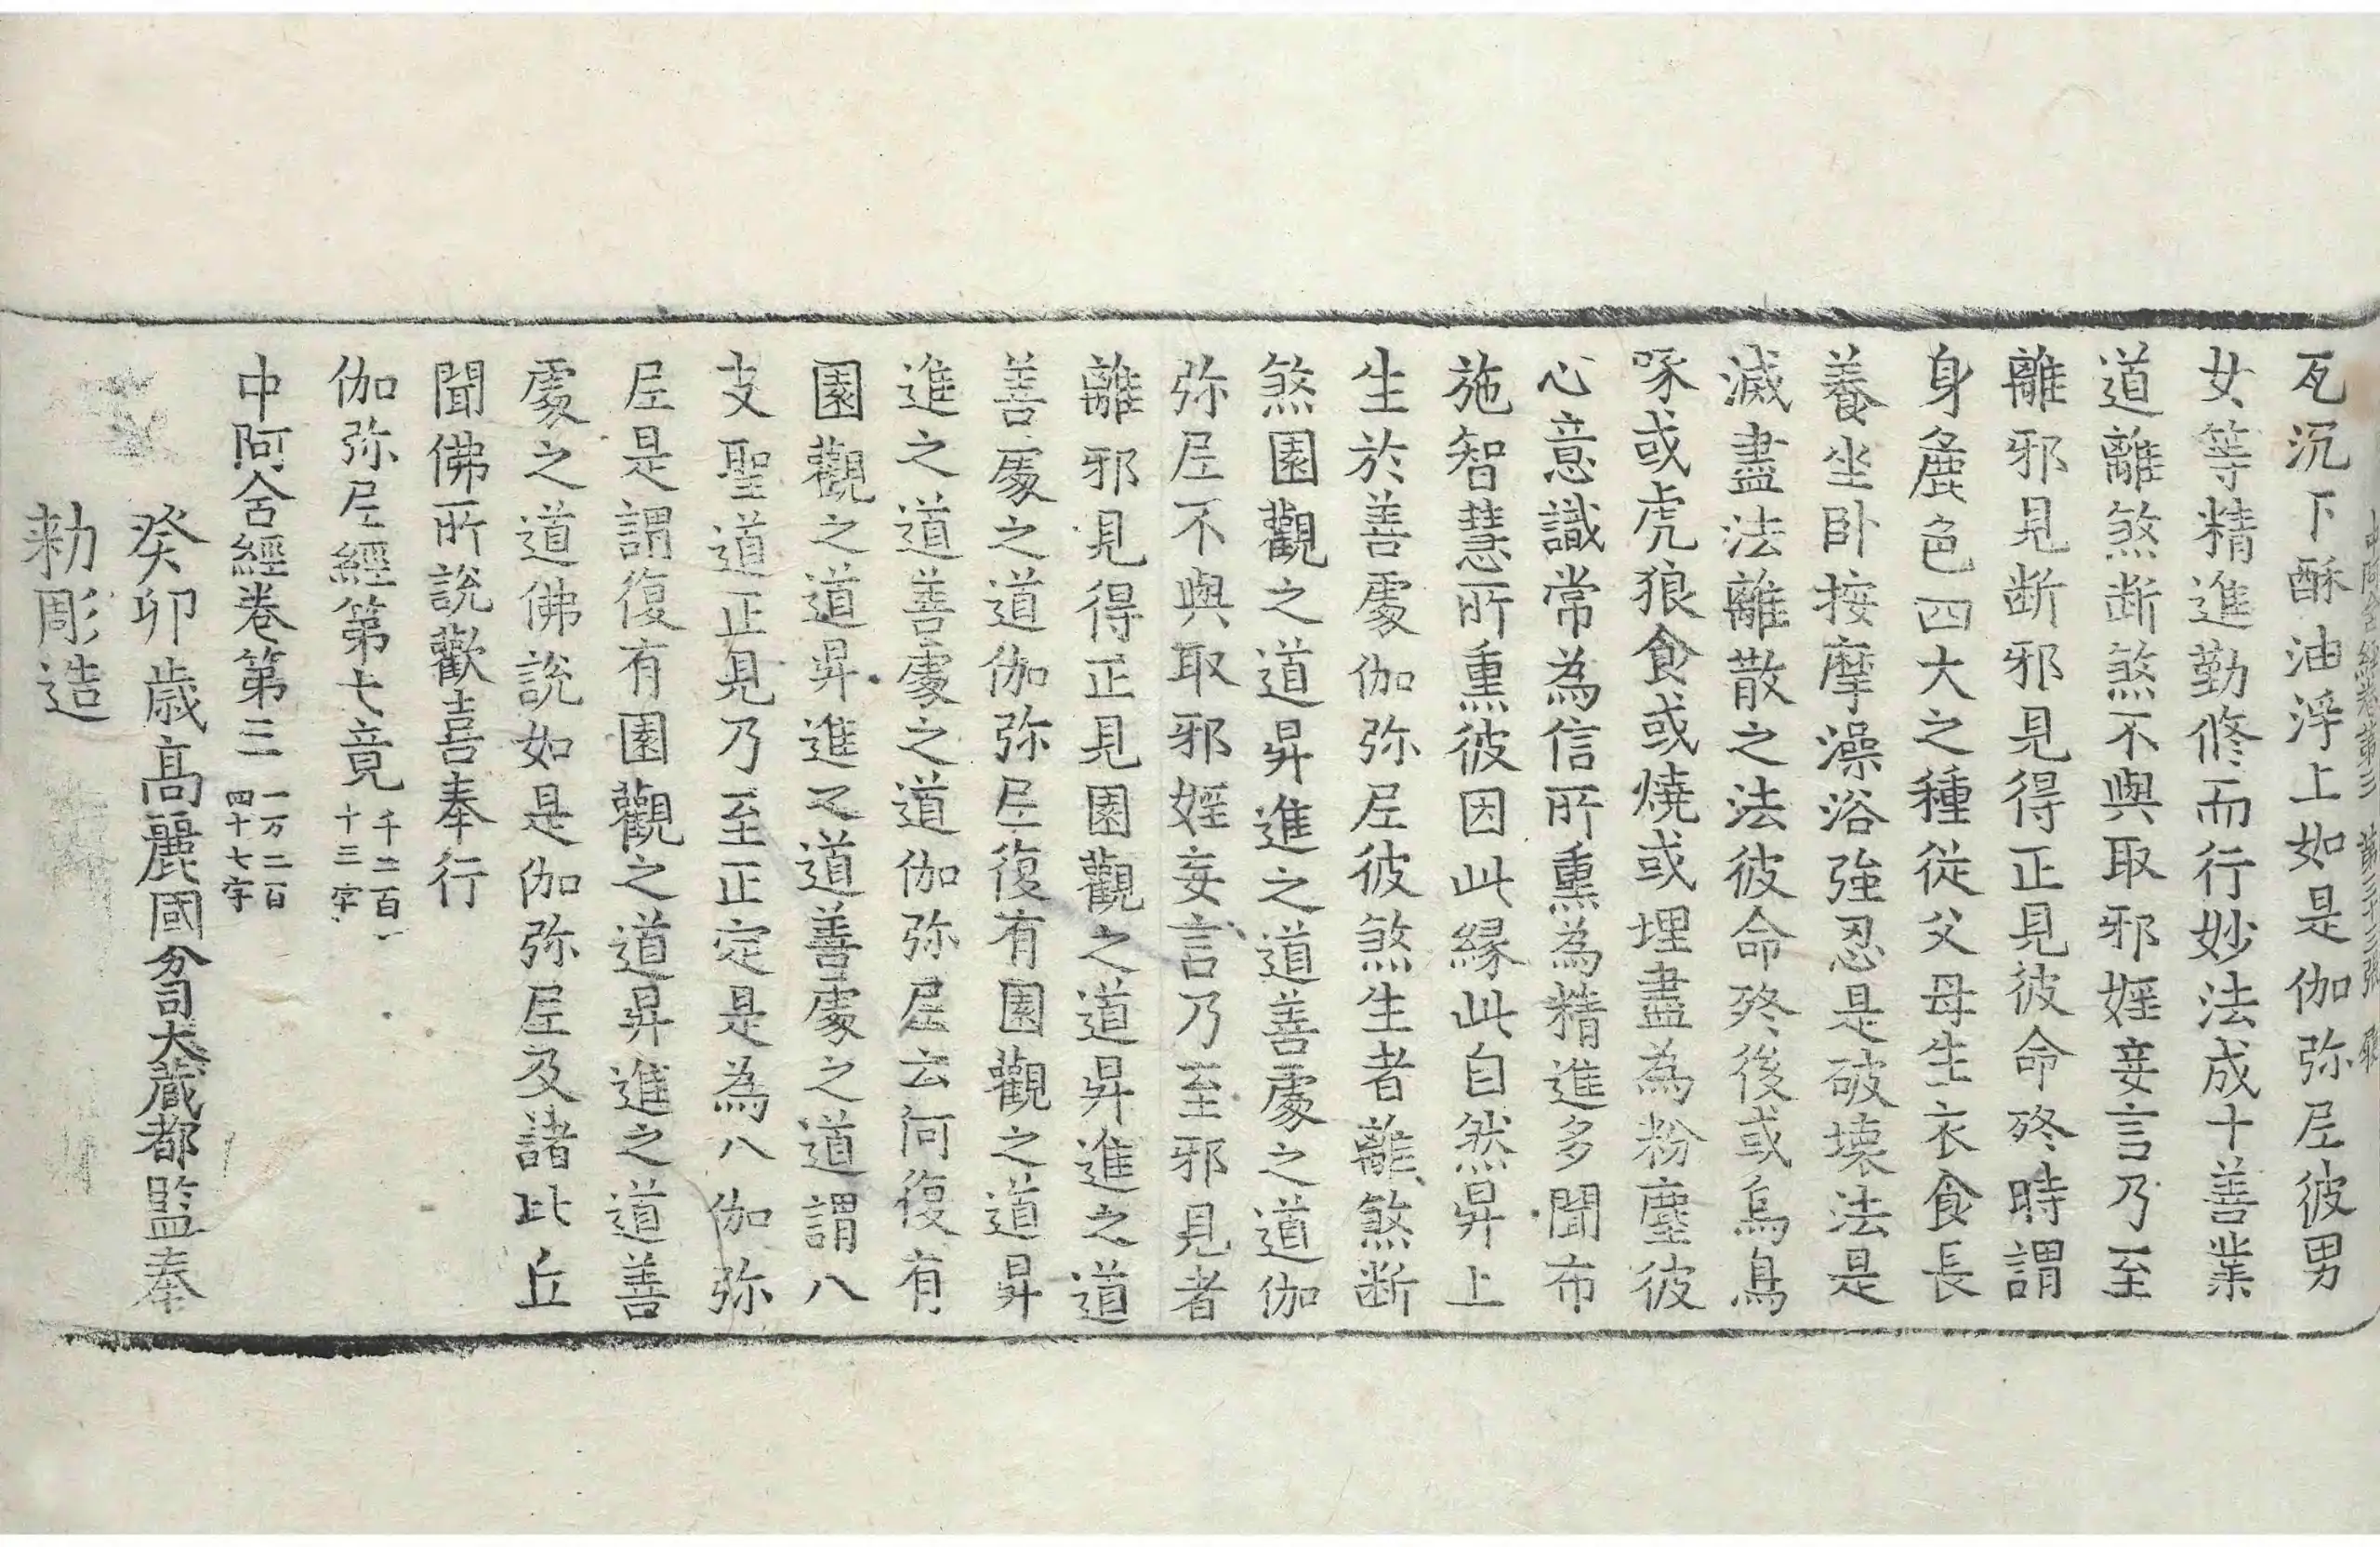 瓦沉下酥油浮上如是伽弥尼彼男
女等精進勤修而行妙法成十善業
道離煞断煞不與取邪婬妄言乃至
離邪見断邪見得正見彼命終時謂
身麁色四大之種從父母生衣食長
養坐卧按摩澡浴強忍是破壊法是
滅盡法離散之法彼命終後或烏鳥
啄或虎狼食或燒或埋盡為粉塵彼
心意識常為信所熏為精進多聞布
施智慧所熏彼因此縁此自然昇上
生於善處伽弥尼彼煞生者離煞断
煞園觀之道昇進之道善處之道伽
弥尼不與取邪婬妄言乃至邪見者
離邪見得正見園觀之道昇進之道
善處之道伽弥尼復有園觀之道昇
進之道善處之道伽弥尼云何復有
園觀之道昇進之道善處之道謂八
支聖道正見乃至正定是為八伽弥
尼是謂復有園觀之道昇進之道善
處之道佛說如是伽弥尼及諸比丘
聞佛所說歡喜奉行
伽弥尼經第七竟 千二百十三字
中阿含經卷第三 一万二百四十七字
癸卯歳高麗國分司大蔵都監奉
勑彫造